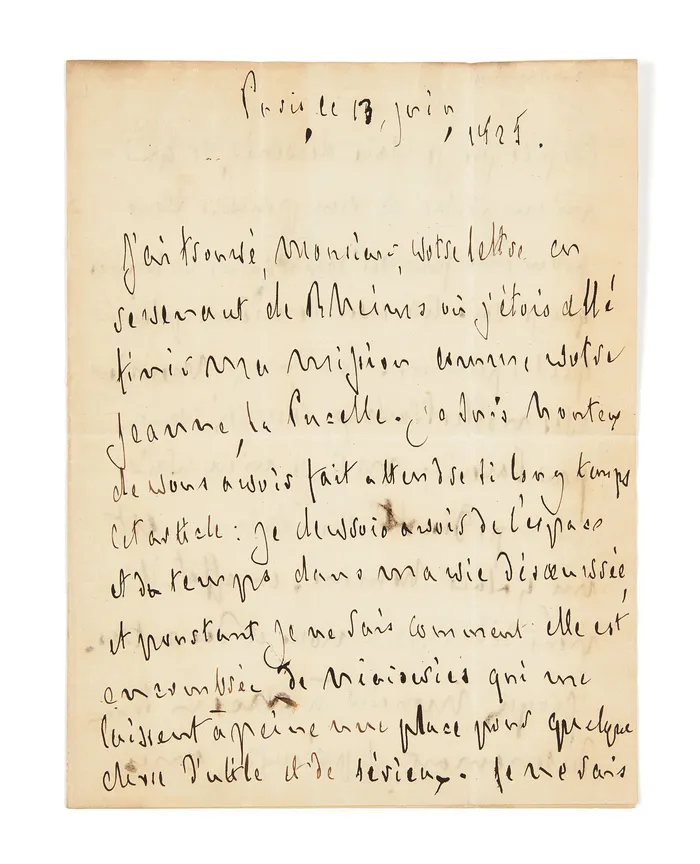 Paris, le 13, juin, 1825.
j'ai trouvé, Monsieur, votre lettre en
revenant de Rheims où j'étois allé
finir ma mission comme votre
Jeanne la Pucelle. je suis honteux
de vous avoir fait attendre si long temps
cet article : je devrois avoir de l'espace
et du temps dans ma vie désœuvrée,
et pourtant je ne sais comment elle est
encombrée de niaiseries qui me
laissent à peine une place pour quelque
chose d'utile et de sérieux. je ne sais